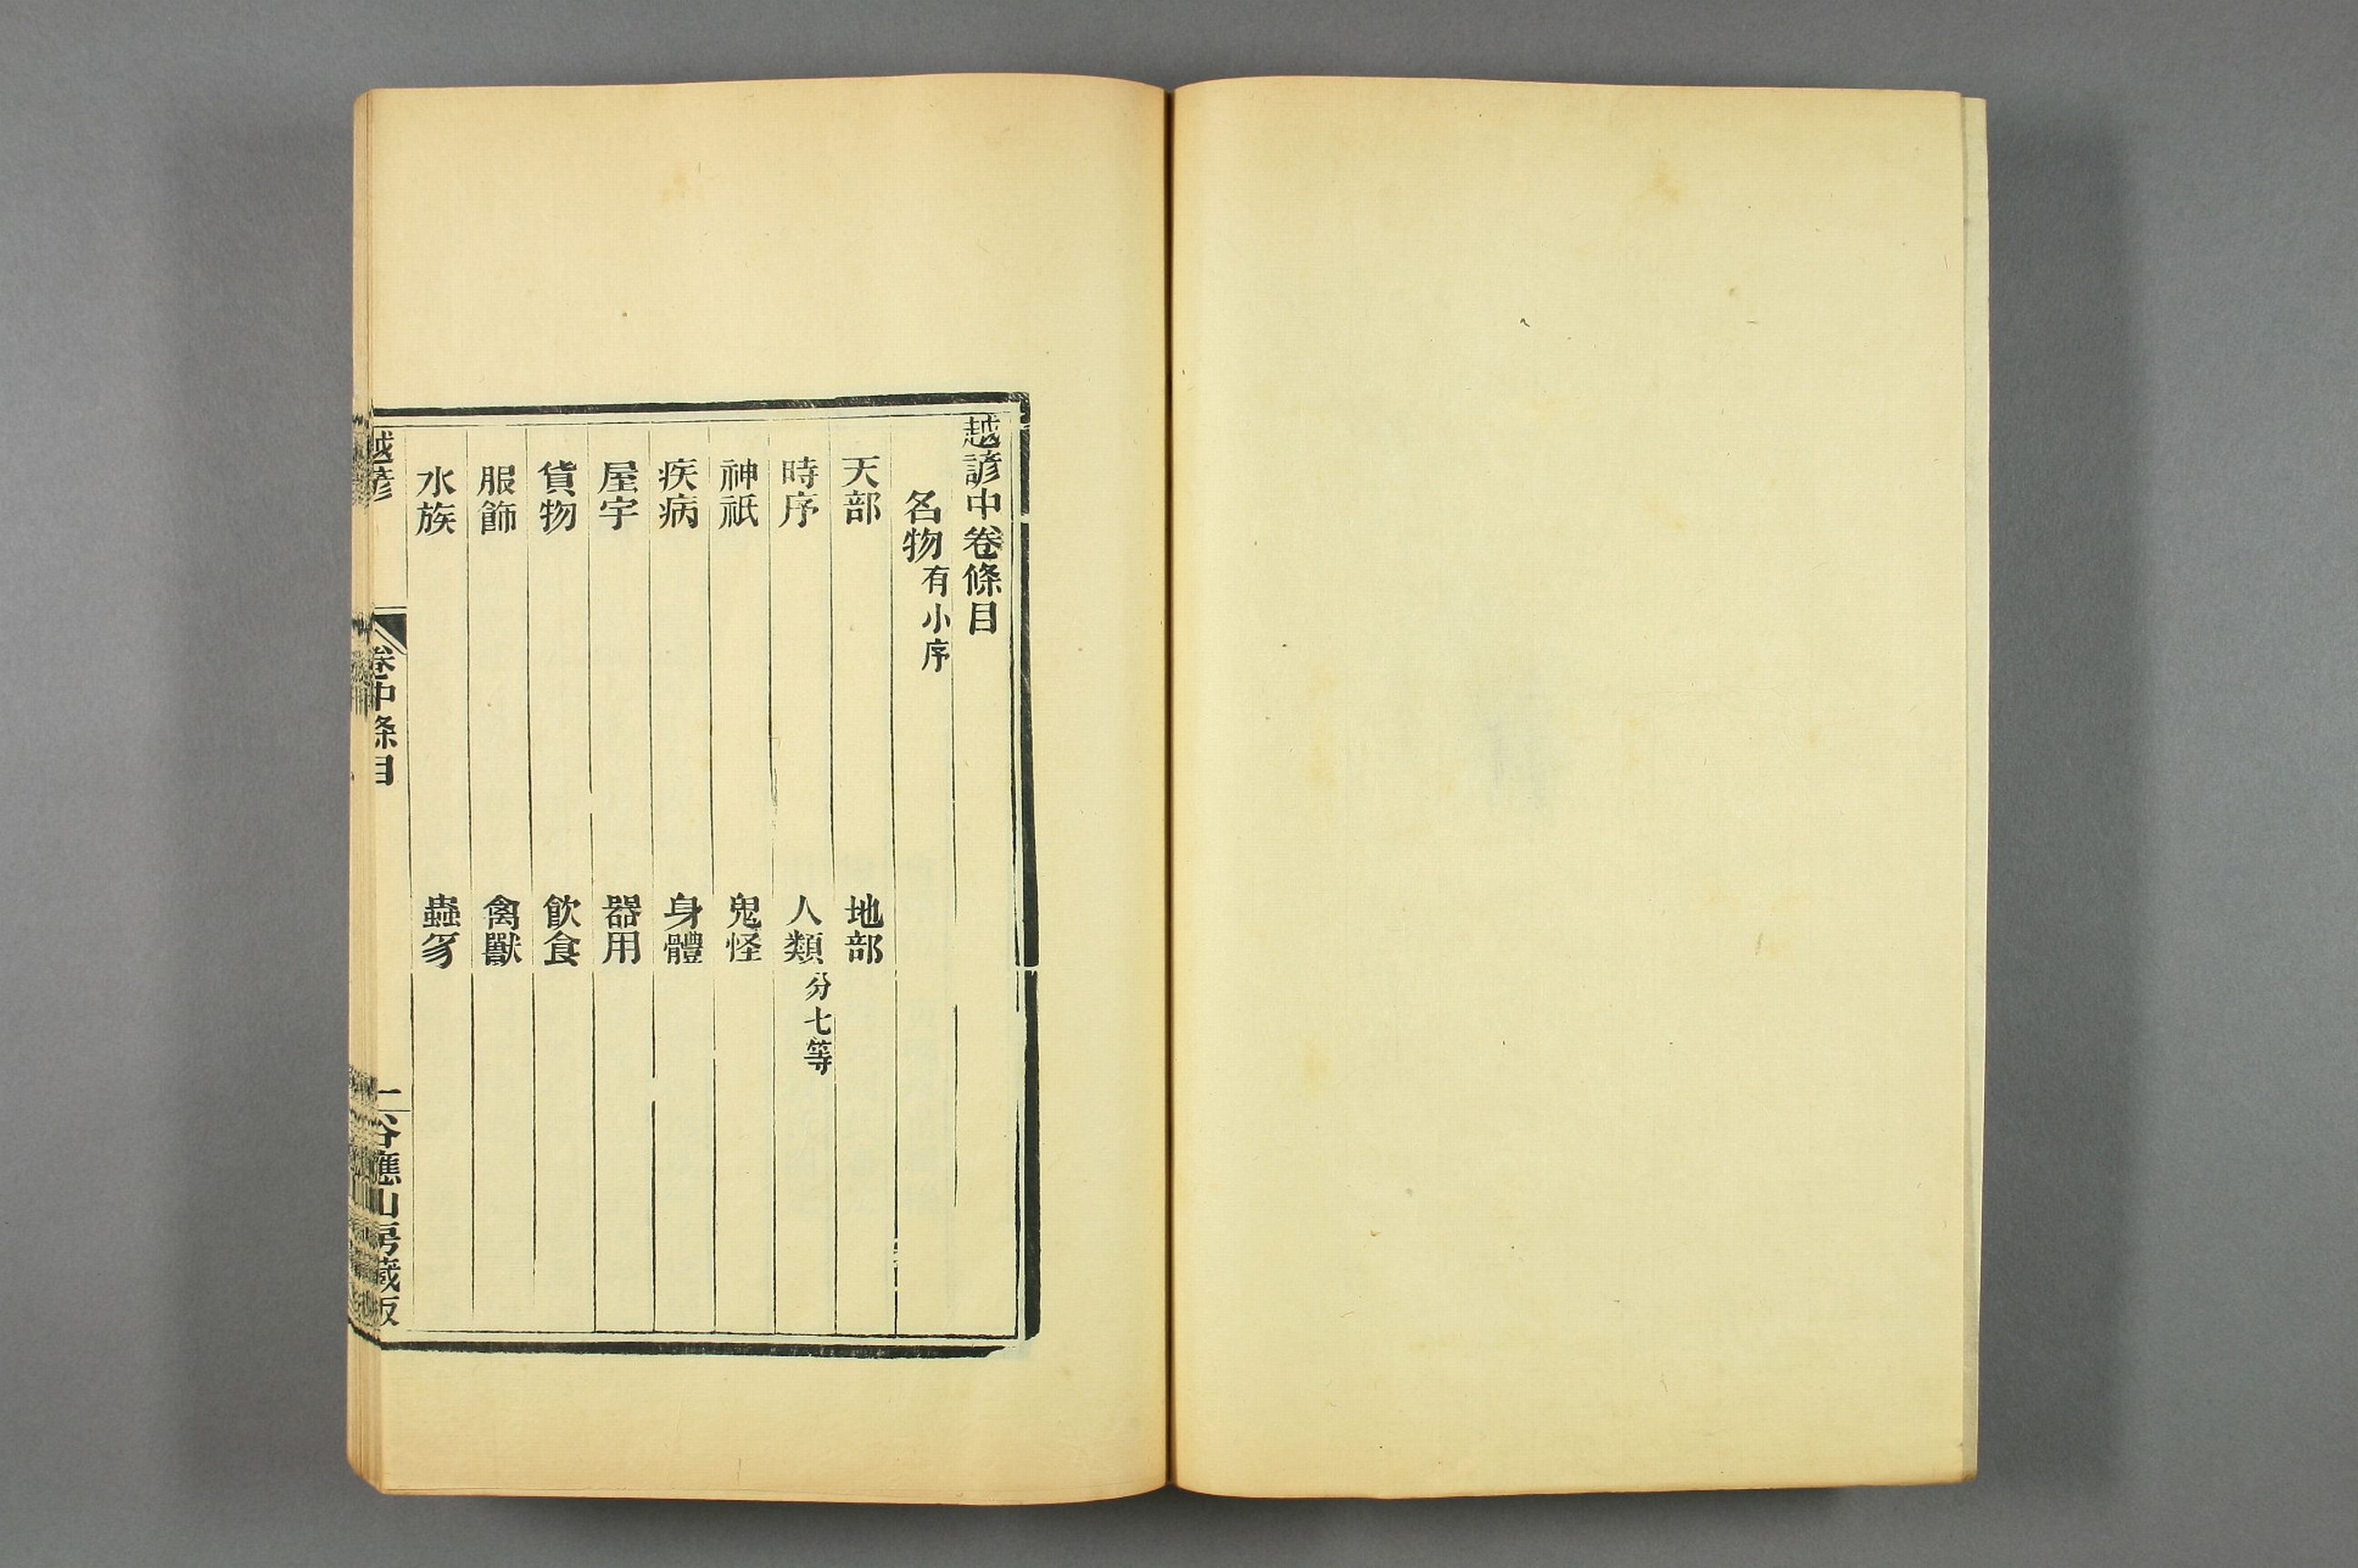 越諺中卷條目
名物有小序
天部 地部
時序 人類分七等
神祇 鬼怪
疾病 身體
屋宇 器用
貨物 飲食
服飾 禽獸
水族 蟲豸
越諺 卷中條目 一 谷應山房藏板